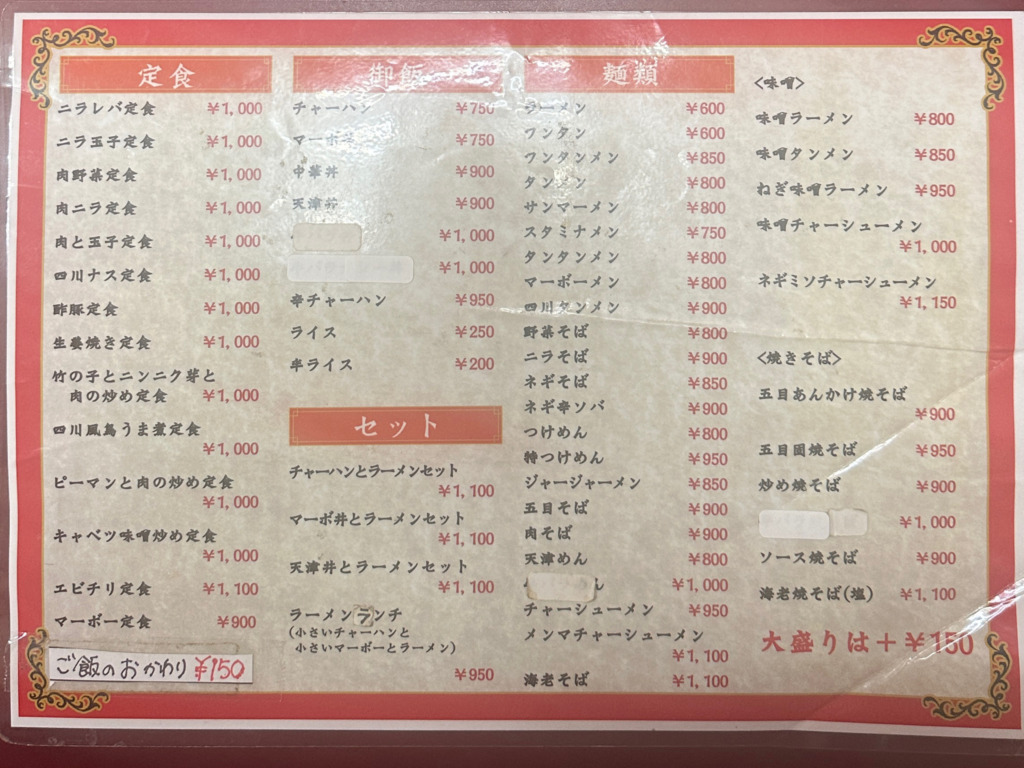 定食
ニラレバ定食 ¥1,000
ニラ玉子定食 ¥1,000
肉野菜定食 ¥1,000
肉ニラ定食 ¥1,000
肉と玉子定食 ¥1,000
四川ナス定食 ¥1,000
酢豚定食 ¥1,000
生姜焼き定食 ¥1,000
竹の子とニンニク芽と
肉の炒め定食 ¥1,000
四川風鳥うま煮定食
¥1,000
ピーマンと肉の炒め定食
¥1,000
キャベツ味噌炒め定食
¥1,000
エビチリ定食 ¥1,100
マーボー定食 ¥900
ご飯のおかわり ¥150
御飯
チャーハン ¥750
マーボ丼 ¥750
中華丼 ¥900
天津丼 ¥900
¥1,000
¥1,000
辛チャーハン ¥950
ライス ¥250
半ライス ¥200
セット
チャーハンとラーメンセット
¥1,100
マーボ丼とラーメンセット
¥1,100
天津丼とラーメンセット
¥1,100
ラーメンランチ
(小さいチャーハンと
小さいマーボーとラーメン)
¥950
麺類
ラーメン ¥600
ワンタン ¥600
ワンタンメン ¥850
タンメン ¥800
サンマーメン ¥800
スタミナメン ¥750
タンタンメン ¥800
マーボーメン ¥800
四川タンメン ¥900
野菜そば ¥800
ニラそば ¥900
ネギそば ¥850
ネギ辛ソバ ¥900
つけめん ¥800
特つけめん ¥950
ジャージャーメン ¥850
五目そば ¥900
肉そば ¥900
天津めん ¥800
ん ¥1,000
チャーシューメン ¥950
メンマチャーシューメン
¥1,100
海老そば ¥1,100
<味噌>
味噌ラーメン ¥800
味噌タンメン ¥850
ねぎ味噌ラーメン ¥950
味噌チャーシューメン
¥1,000
ネギミソチャーシューメン
¥1,150
<焼きそば>
五目あんかけ焼そば
¥900
五目固焼そば ¥950
炒め焼そば ¥900
¥1,000
ソース焼そば ¥900
海老焼そば(塩) ¥1,100
大盛りは+¥150